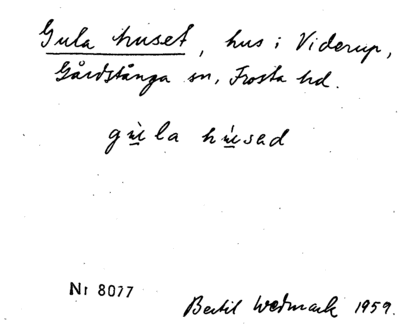 Gula huset, hus i Viderup,
Gårdstånga sn, Frosta hd.
gù̱la hú̱sad
Nr 8077
Bertil Wedmark 1959.